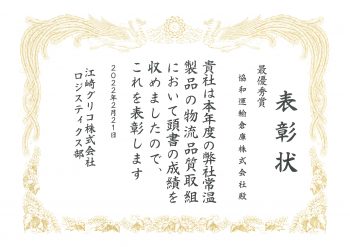 表彰状
最優秀賞
協和運輸倉庫株式会社殿
貴社は本年度の弊社常温
製品の物流品質取組
において頭書の成績を
収めましたので、
これを表彰します
2022年2月21日
江崎グリコ株式会社
ロジスティクス部